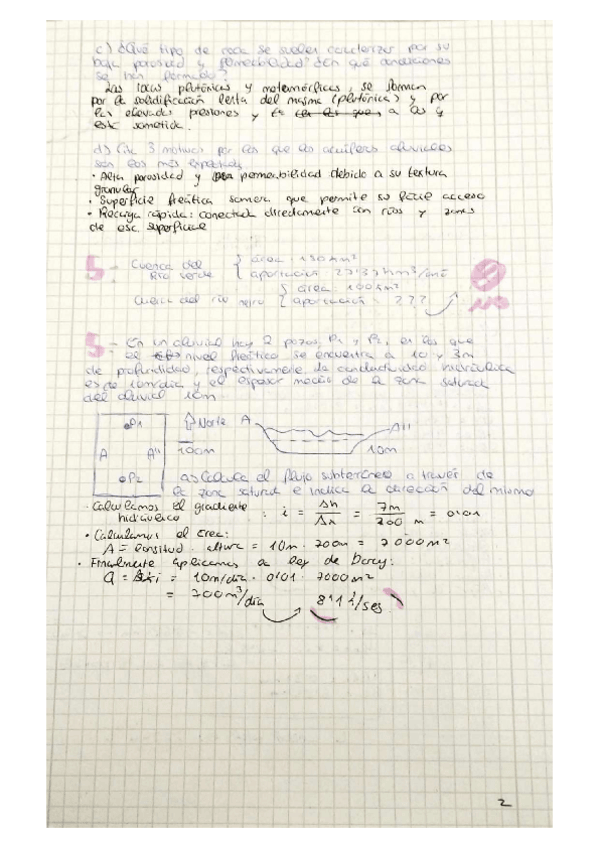 c) ¿Qué tipo de roca se suelen caracterizar por su
baja porosidad y permeabilidad? ¿En qué condiciones
se han formado?
Las rocas plutónicas y metamórficas, se forman
por la solidificación lenta del magma (plutónicas) y por
las elevadas presiones y a las q
está sometida.
d) Cite 3 motivos por los que los acuíferos aluviales
son los más
· Alta porosidad y permeabilidad debido a su textura
granular
· Superficie freática somera que permite su fácil acceso
· Recarga rápida: conectada directamente con ríos y zonas
de esc. superficial
5- Cuenca del Río verde { área: 150 km²
aportación 27'37 hm³/año
Cuenca del río negro { área: 100 km²
aportación: ???
NO
5- En un aluvial hay 2 pozos, P1 y P2, en los que
el nivel freático se encuentra a 10 y 3m
de profundidad, respectivamente. La conductividad hidráulica
es de 10m/día y el espesor medio de la zona saturada
del aluvial 10m.
P1
Norte
A
A''
A
A''
P2
100m
10m
a) Calcula el flujo subterráneo a través de
la zona saturada e indica la dirección del mismo
· Calculamos el gradiente hidráulico: i = Δh/Δx = 7m/700 m = 0'01
· Calculamos el área:
A = longitud · altura = 10m · 700m = 7000m²
· Finalmente aplicamos la ley de Darcy:
Q = = 10m/día · 0'01 · 7000m²
= 700m³/día 8'1 l/seg
2